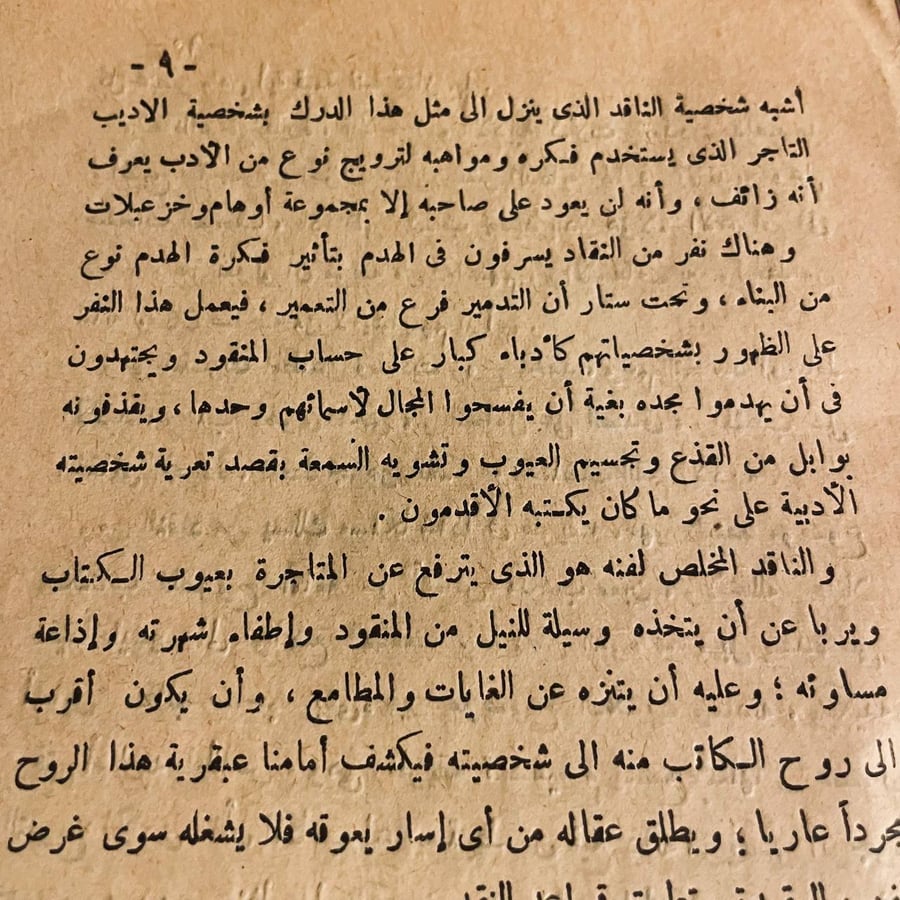 - ٩ -
أشبه شخصية الناقد الذى ينزل الى مثل هذا الدرك بشخصية الاديب
التاجر الذى يستخدم فكره ومواهبه لترويج نوع من الأدب يعرف
أنه زائف ، وأنه لن يعود على صاحبه إلا بمجموعة أوهام وخزعبلات
وهناك نفر من النقاد يسرفون فى الهدم بتأثير فكرة الهدم نوع
من البناء ، وتحت ستار أن التدمير فرع من التعمير ، فيعمل هذا النفر
على الظهور بشخصياتهم كأدباء كبار على حساب المنقود ويجتهدون
فى أن يهدموا مجده بغية أن يفسحوا المجال لأسمائهم وحدها ، ويقذفونه
بوابل من القذع وتجسيم العيوب وتشويه السمعة بقصد تعرية شخصيته
الأدبية على نحو ما كان يكتبه الأقدمون .
والناقد المخلص لفنه هو الذى يترفع عن المتاجرة بعيوب الكتاب
ويربا عن أن يتخذه وسيلة للنيل من المنقود وإطفاء شهرته وإذاعة
مساوئه ؛ وعليه أن يتنزه عن الغايات والمطامع ، وأن يكون أقرب
الى روح الكاتب منه الى شخصيته فيكشف أمامنا عبقرية هذا الروح
مجرداً عاريا ؛ ويطلق عقاله من أى إسار يعوقه فلا يشغله سوى غرض
قواعد النقد